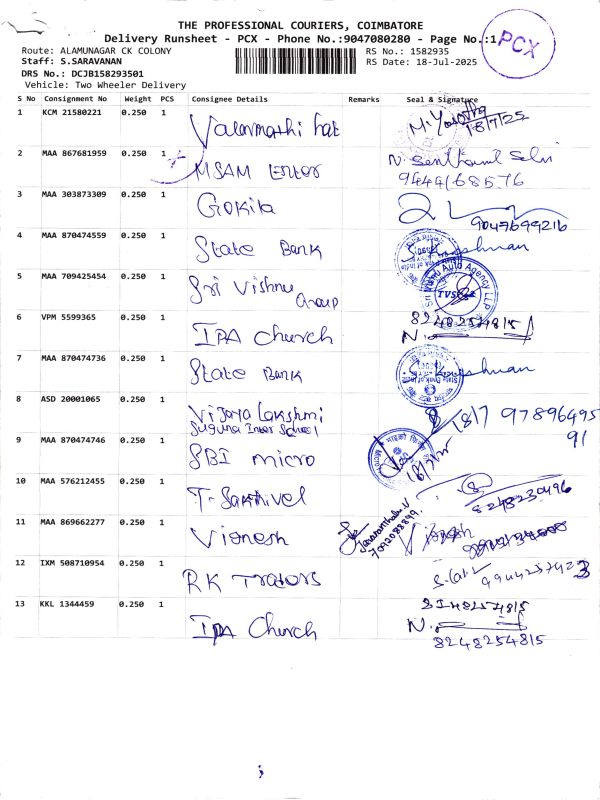 THE PROFESSIONAL COURIERS, COIMBATORE
Delivery Runsheet - PCX - Phone No.:9047080280 - Page No.:1
PCX
Route: ALAMUNAGAR CK COLONY
RS No.: 1582935
Staff: S.SARAVANAN
RS Date: 18-Jul-2025
DRS No.: DCJB158293501
Vehicle: Two Wheeler Delivery
S No Consignment No Weight PCS Consignee Details Remarks Seal & Signature
1 KCM 21580221 0.250 1
18/7/25
2 MAA 867681959 0.250 1 MSAM
N. Senthamil Selvi
9444168576
3 MAA 303873309 0.250 1 Gokila
9047699216
4 MAA 870474559 0.250 1 State Bank
5 MAA 709425454 0.250 1 Sri Vishnu Group
Sri Vishnu Auto Agency LLP
TVS
6 VPM 5599365 0.250 1 IPA Church
8248254815
N.
7 MAA 870474736 0.250 1 State Bank
State Bank of India
8 ASD 20001065 0.250 1 Vijaya Lakshmi
18/7 9789649591
9 MAA 870474746 0.250 1 SBI micro
10 MAA 576212455 0.250 1 T. Sakthivel
8248230496
11 MAA 869662277 0.250 1 Vignesh
7092088899
Vignesh
12 IXM 508710954 0.250 1 RK Trators
9944257423
13 KKL 1344459 0.250 1 IPA Church
N.
8248254815